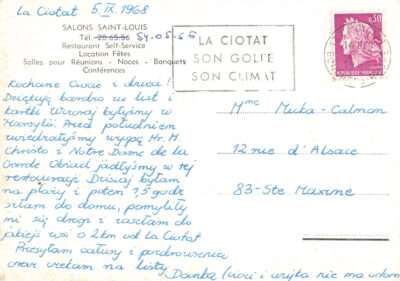 La Ciotat 5 IX 1968
SALONS SAINT-LOUIS
Tél. 20.65.56 84-05-56
Restaurant Self-Service
Location Fêtes
Salles pour Réunions - Noces - Banquets
Conférences
LA CIOTAT
SON GOLFE
SON CLIMAT
0,30
REPUBLIQUE FRANCAISE
Kochane Ciocie i
Dziękuję bardzo za list i
kartki Wczoraj byłyśmy w
Marsylii. Przed południem
zwiedzałyśmy wyspę
Christo i Notre Dame de la
Garde Obiad jadłyśmy w tej
restauracji Dzisiaj byłam
na plaży i potem godz
szłam do domu, pomyliły
mi się drogi i zaszłam do
jakiejś wsi o 2km od La Ciotat
Przesyłam całusy i pozdrowienia
oraz czekam na listy
Danka
Mme Micka-Calmon
12 rue d'Alsace
83-Ste Maxime